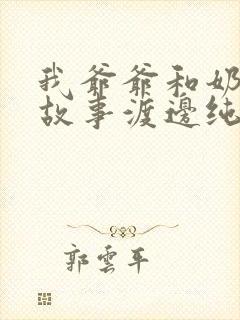 我爷爷和奶
故事渡邊纯
郭雲平